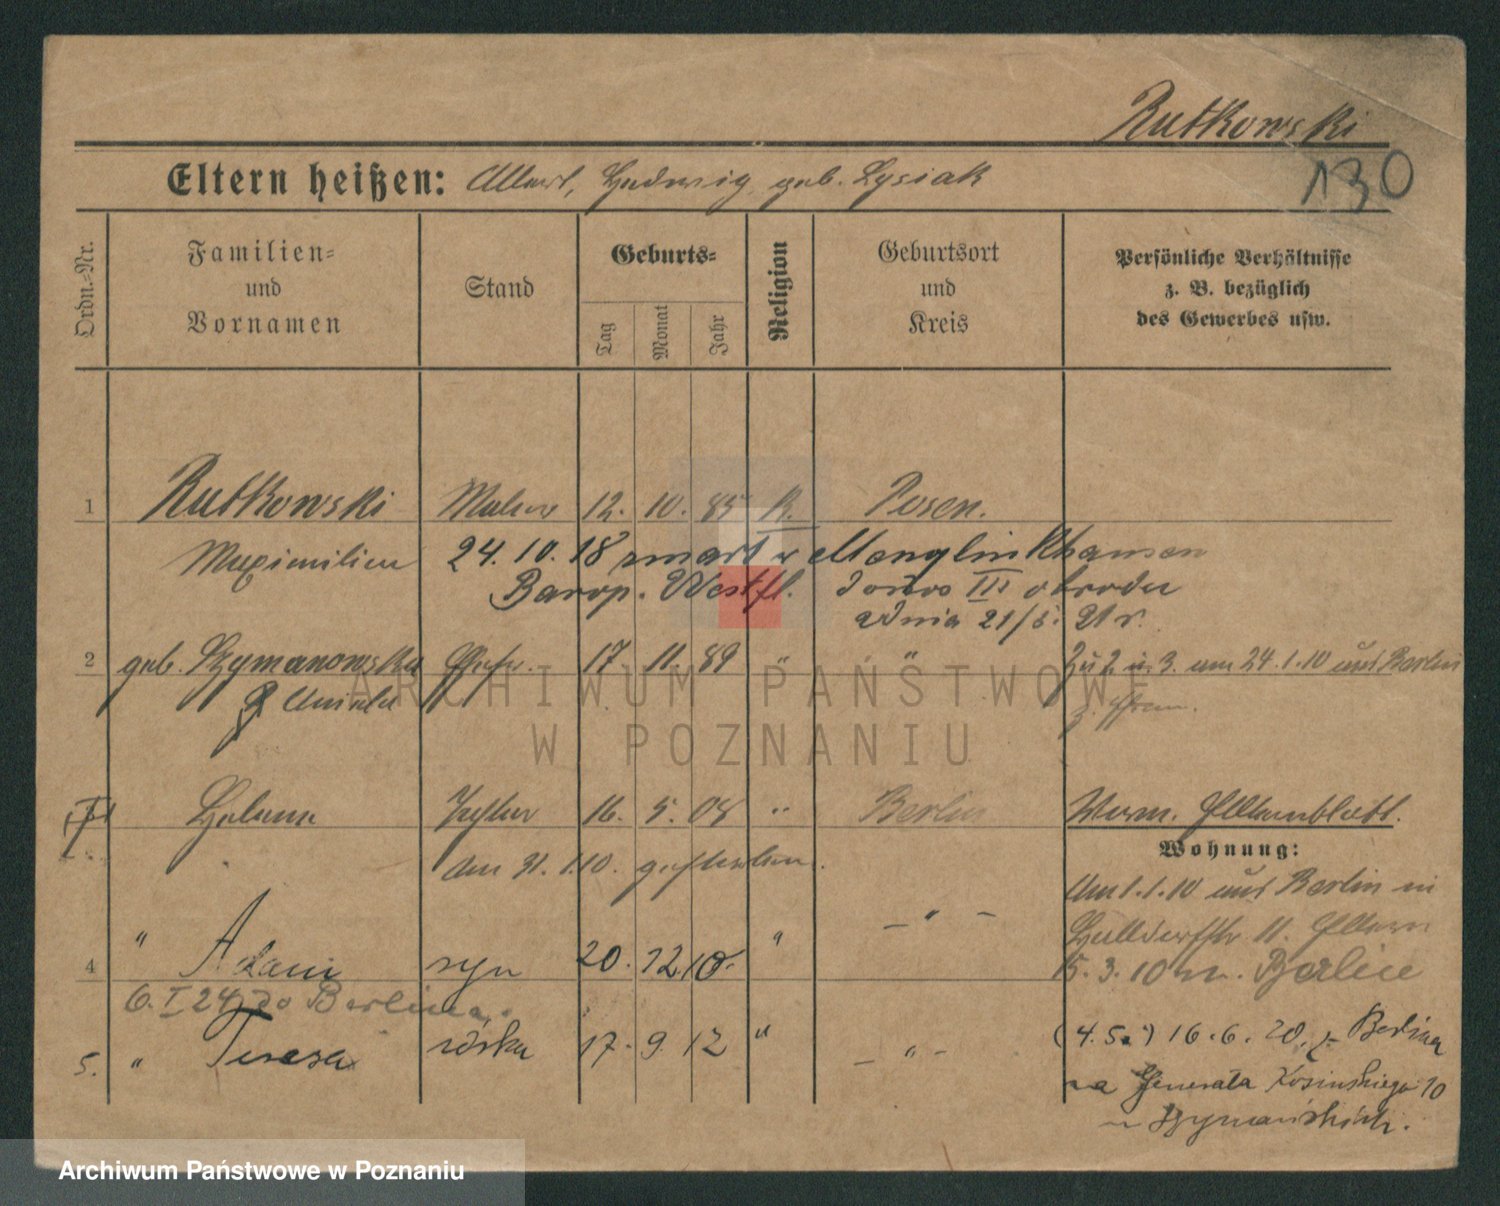 Rutkowski
130
Eltern heißen: Albert, Hedwig geb. Lysiak
Ordn.-Nr.
Familien-
und
Vornamen
Stand
Geburts-
Tag
Monat
Jahr
Religion
Geburtsort
und
Kreis
Persönliche Verhältnisse
z. B. bezüglich
des Gewerbes usw.
1 Rutkowski Maler 12. 10. 85 K. Posen.
Maximilian 24. 10. 18 zmarł w Menglinkhausen
Barop. Westfl. dowo III obrodu
z dnia 21/5. 21 r.
2 geb. Szymanowska Ehefr. 17 11. 89 " "
Zu 2 u. 3. am 24.1.10 aus Berlin
z. Ehem.
Helene Tochter 16. 5. 08 " Berlin
Verm. Elternblatt.
am 31. 1.10. gestorben.
Wohnung:
Am 1.1.10 aus Berlin in
" – " –
11. Eltern
4 Adam syn 20. 12 10. "
15. 3. 10 n. Berlin
6. I 24 do Berlina.
5. " Teresa córka 17. 9. 12 " – " –
(4. 5.) 16. 6. 20. z Berlina
na Generała Kosinskiego 10
ARCHIWUM PAŃSTWOWE
W POZNANIU
Archiwum Państwowe w Poznaniu